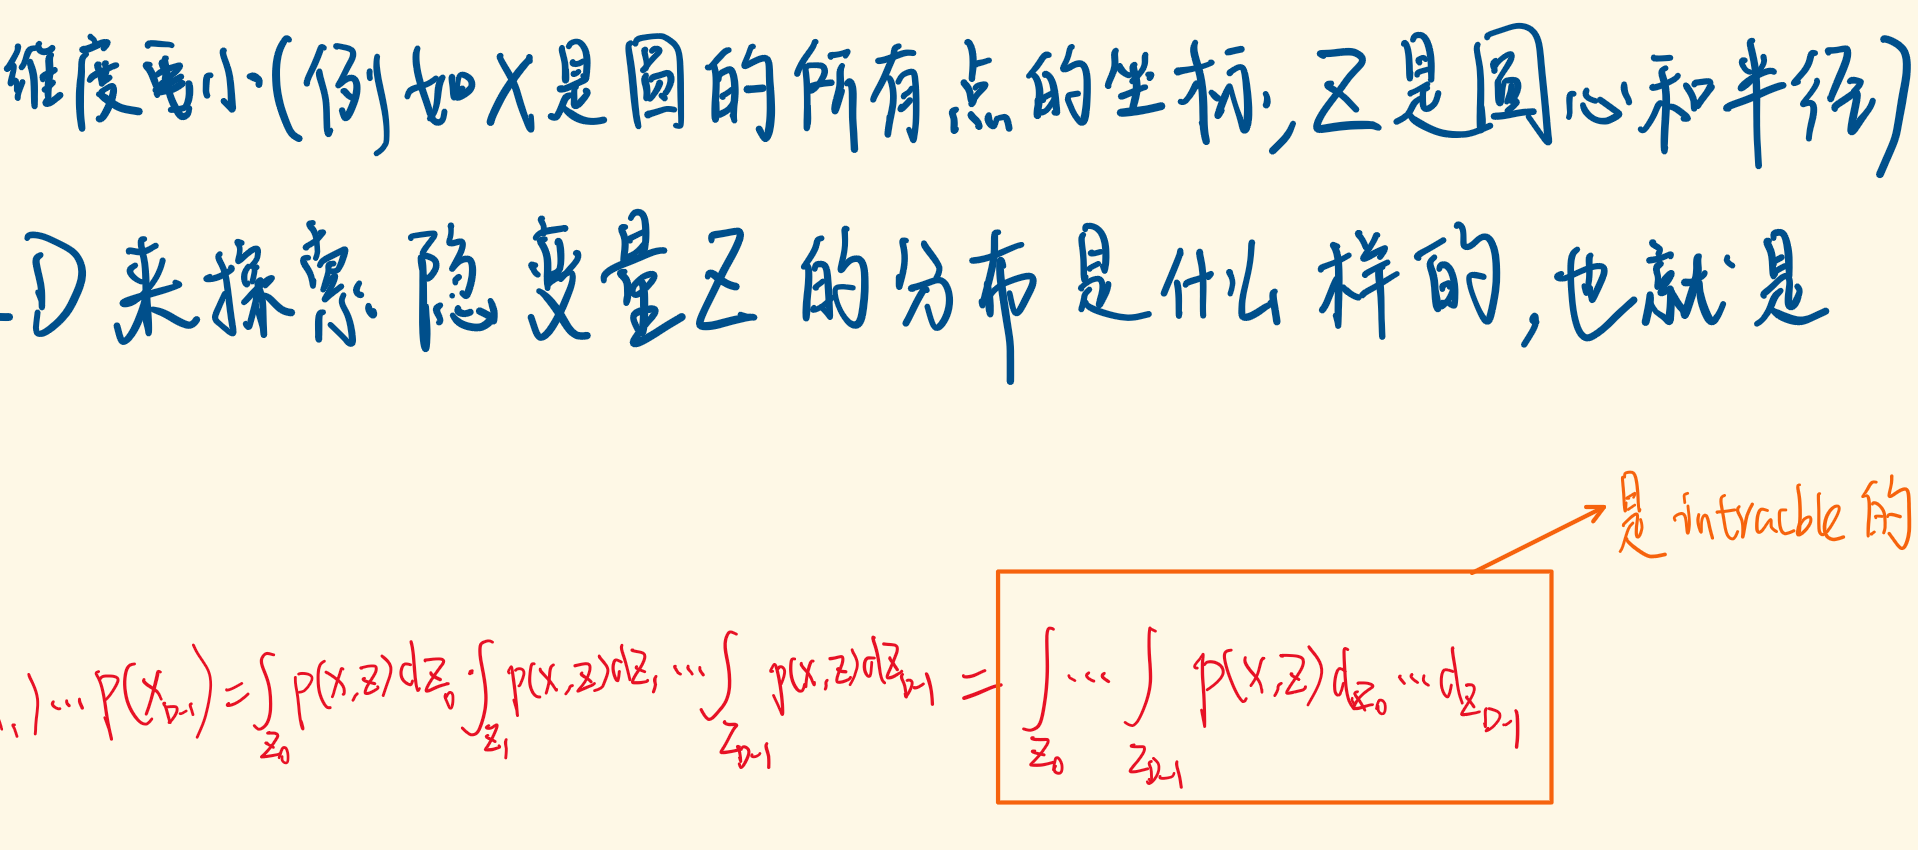 维度更小(例如X是圆的所有点的坐标, Z是圆心和半径)
D来探索隐变量Z的分布是什么样的,也就是
是 intracble 的
,)…p(X_{D-1}) = ∫_{Z_0} p(X,Z)dZ_0 · ∫_{Z_1} p(X,Z)dZ_1 … ∫_{Z_{D-1}} p(X,Z)dZ_{D-1} = ∫_{Z_0} … ∫_{Z_{D-1}} p(X,Z)d_{Z_0} … d_{Z_{D-1}}